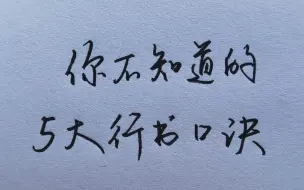 你不知道的
5大行书口诀